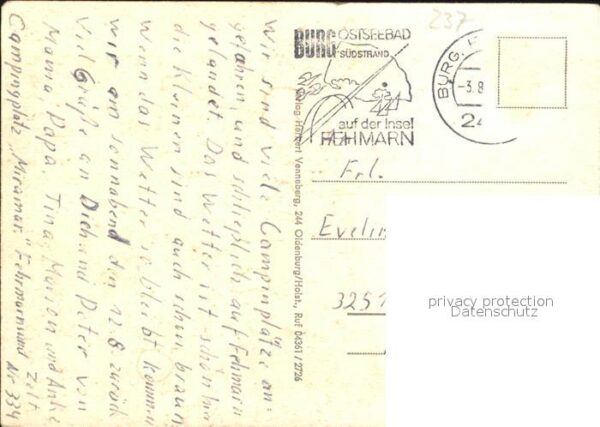 Wir sind viele Campinplätze an-
gefahren und schließlich auf Fehmarn
gelandet. Das Wetter ist schön
die Kleinen sind auch schon braun
Wenn das Wetter so bleibt kommen
wir am Sonnabend den 12.8. zurück
Viel Grüße an Dich und Peter von
Mama Papa. Tina, Marion und Anke
Campingplatz „Miramar" Fehmarnsund Zelt Nr 334
Verlag Herbert Venneberg, 244 Oldenburg/Holst., Ruf 04361/2726
237
BURG OSTSEEBAD
SÜDSTRAND
auf der Insel
FEHMARN
BURG,
-3.8
24
Frl.
Evelin
325
privacy protection
Datenschutz